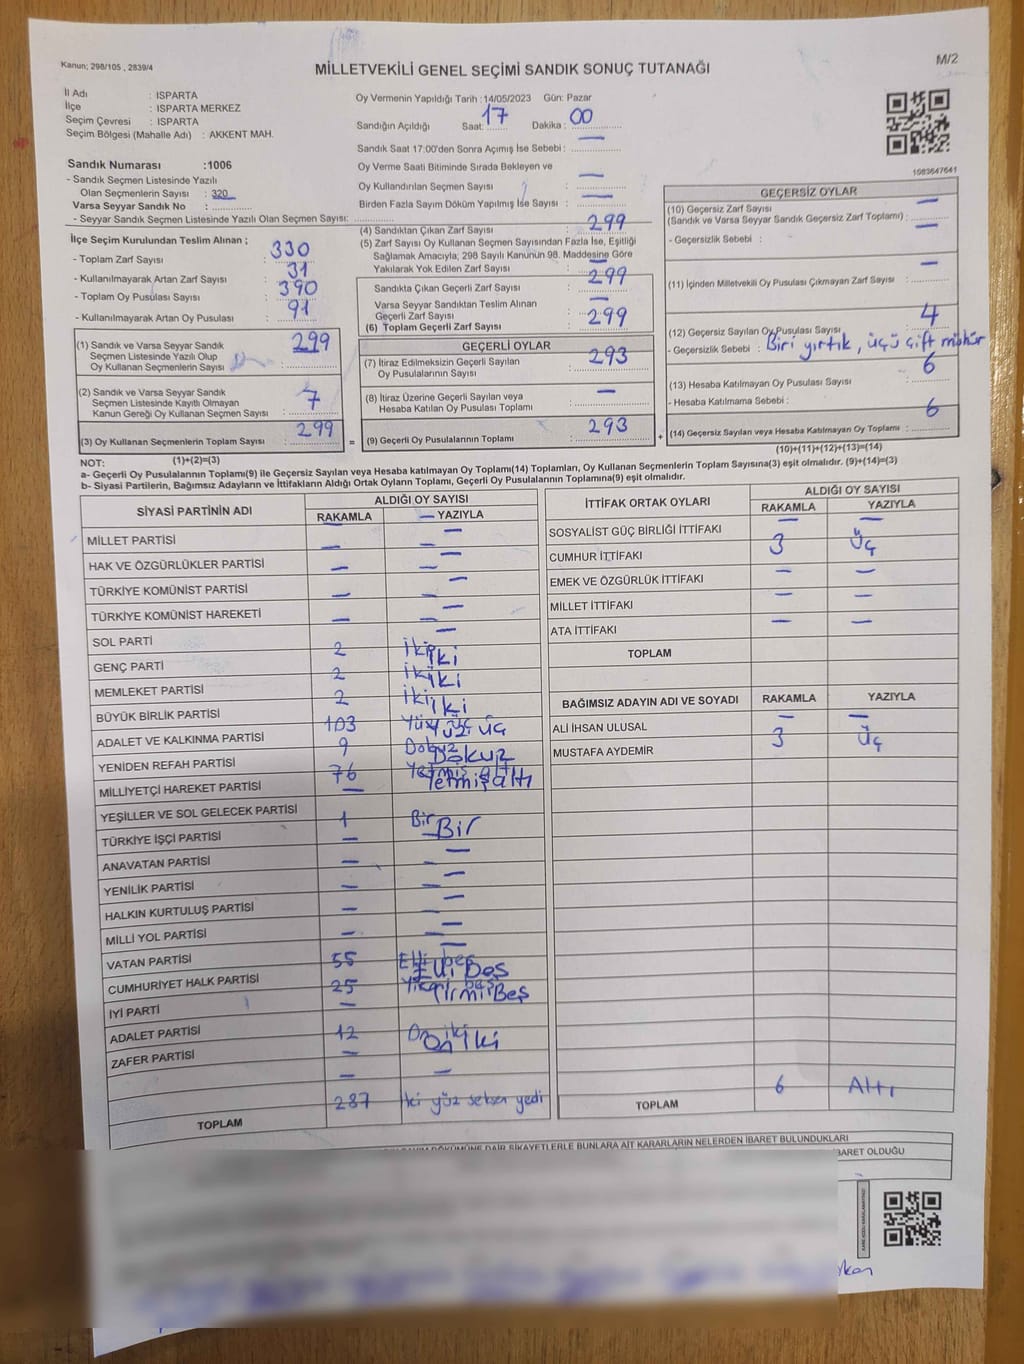 Kanun; 298/105 , 2839/4
M/2
MİLLETVEKİLİ GENEL SEÇİMİ SANDIK SONUÇ TUTANAĞI
İl Adı : ISPARTA
İlçe : ISPARTA MERKEZ
Seçim Çevresi : ISPARTA
Seçim Bölgesi (Mahalle Adı) : AKKENT MAH.
Sandık Numarası :1006
- Sandık Seçmen Listesinde Yazılı
Olan Seçmenlerin Sayısı : 320
Varsa Seyyar Sandık No :
- Seyyar Sandık Seçmen Listesinde Yazılı Olan Seçmen Sayısı:
Oy Vermenin Yapıldığı Tarih :14/05/2023 Gün: Pazar
Sandığın Açıldığı Saat: 17 Dakika : 00
Sandık Saat 17:00'den Sonra Açımış İse Sebebi : —
Oy Verme Saati Bitiminde Sırada Bekleyen ve
Oy Kullandırılan Seçmen Sayısı : —
Birden Fazla Sayım Döküm Yapılmış İse Sayısı : —
1983647641
İlçe Seçim Kurulundan Teslim Alınan ;
- Toplam Zarf Sayısı : 330
- Kullanılmayarak Artan Zarf Sayısı : 31
- Toplam Oy Pusulası Sayısı : 390
- Kullanılmayarak Artan Oy Pusulası : 91
(1) Sandık ve Varsa Seyyar Sandık
Seçmen Listesinde Yazılı Olup
Oy Kullanan Seçmenlerin Sayısı : 299
(2) Sandık ve Varsa Seyyar Sandık
Seçmen Listesinde Kayıtlı Olmayan
Kanun Gereği Oy Kullanan Seçmen Sayısı : 7
(3) Oy Kullanan Seçmenlerin Toplam Sayısı : 299
(1)+(2)=(3)
(4) Sandıktan Çıkan Zarf Sayısı : 299
(5) Zarf Sayısı Oy Kullanan Seçmen Sayısından Fazla İse, Eşitliği
Sağlamak Amacıyla; 298 Sayılı Kanunun 98. Maddesine Göre
Yakılarak Yok Edilen Zarf Sayısı : —
Sandıkta Çıkan Geçerli Zarf Sayısı : 299
Varsa Seyyar Sandıktan Teslim Alınan
Geçerli Zarf Sayısı : —
(6) Toplam Geçerli Zarf Sayısı : 299
GEÇERLİ OYLAR
(7) İtiraz Edilmeksizin Geçerli Sayılan
Oy Pusulalarının Sayısı : 293
(8) İtiraz Üzerine Geçerli Sayılan veya
Hesaba Katılan Oy Pusulası Toplamı : —
= (9) Geçerli Oy Pusulalarının Toplamı : 293
GEÇERSİZ OYLAR
(10) Geçersiz Zarf Sayısı
(Sandık ve Varsa Seyyar Sandık Geçersiz Zarf Toplamı) : —
- Geçersizlik Sebebi : —
(11) İçinden Milletvekili Oy Pusulası Çıkmayan Zarf Sayısı : —
(12) Geçersiz Sayılan Oy Pusulası Sayısı : 4
- Geçersizlik Sebebi : Biri yırtık, üçü çift mühür
(13) Hesaba Katılmayan Oy Pusulası Sayısı : 6
- Hesaba Katılmama Sebebi :
+ (14) Geçersiz Sayılan veya Hesaba Katılmayan Oy Toplamı : 6
(10)+(11)+(12)+(13)=(14)
NOT:
a- Geçerli Oy Pusulalarının Toplamı(9) ile Geçersiz Sayılan veya Hesaba katılmayan Oy Toplamı(14) Toplamları, Oy Kullanan Seçmenlerin Toplam Sayısına(3) eşit olmalıdır. (9)+(14)=(3)
b- Siyasi Partilerin, Bağımsız Adayların ve İttifakların Aldığı Ortak Oyların Toplamı, Geçerli Oy Pusulalarının Toplamına(9) eşit olmalıdır.
SİYASİ PARTİNİN ADI ALDIĞI OY SAYISI
RAKAMLA YAZIYLA
MİLLET PARTİSİ — —
HAK VE ÖZGÜRLÜKLER PARTİSİ — —
TÜRKİYE KOMÜNİST PARTİSİ — —
TÜRKİYE KOMÜNİST HAREKETİ — —
SOL PARTİ — —
GENÇ PARTİ 2 İki İki
MEMLEKET PARTİSİ 2 İki İki
BÜYÜK BİRLİK PARTİSİ 2 İki İki
ADALET VE KALKINMA PARTİSİ 103 Yüz üç Yüz üç
YENİDEN REFAH PARTİSİ 9 Dokuz Dokuz
MİLLİYETÇİ HAREKET PARTİSİ 76 Yetmiş altı Yetmiş altı
YEŞİLLER VE SOL GELECEK PARTİSİ —
TÜRKİYE İŞÇİ PARTİSİ 1 Bir Bir
ANAVATAN PARTİSİ — —
YENİLİK PARTİSİ — —
HALKIN KURTULUŞ PARTİSİ — —
MİLLİ YOL PARTİSİ — —
VATAN PARTİSİ — —
CUMHURİYET HALK PARTİSİ 55 Elli beş Elli Beş
İYİ PARTİ 25 Yirmi beş Yirmi Beş
ADALET PARTİSİ —
ZAFER PARTİSİ 12 On iki On iki
— —
TOPLAM 287 İki yüz seksen yedi
İTTİFAK ORTAK OYLARI ALDIĞI OY SAYISI
RAKAMLA YAZIYLA
SOSYALİST GÜÇ BİRLİĞİ İTTİFAKI — —
CUMHUR İTTİFAKI 3 Üç
EMEK VE ÖZGÜRLÜK İTTİFAKI — —
MİLLET İTTİFAKI — —
ATA İTTİFAKI — —
TOPLAM
BAĞIMSIZ ADAYIN ADI VE SOYADI RAKAMLA YAZIYLA
ALİ İHSAN ULUSAL — —
MUSTAFA AYDEMİR 3 Üç
TOPLAM 6 Altı
DÖKÜMÜNE DAİR ŞİKAYETLERLE BUNLARA AİT KARARLARIN NELERDEN İBARET BULUNDUKLARI
İBARET OLDUĞU